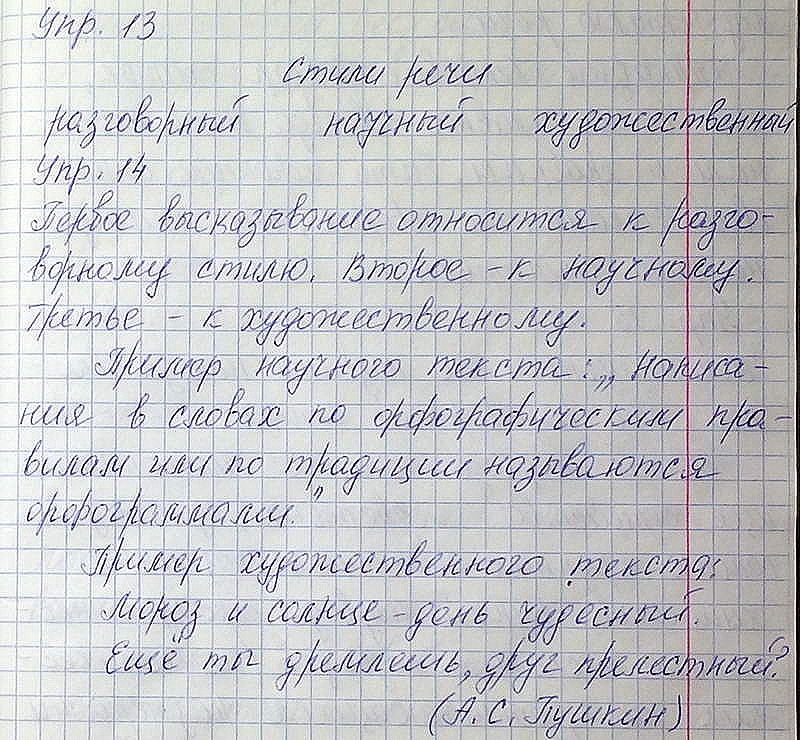 Упр. 13
Стили речи
разговорный научный художественный
Упр. 14
Первое высказывание относится к разго-
ворному стилю. Второе - к научному.
Третье - к художественному.
Пример научного текста: „Написа-
ния в словах по орфографическим пра-
вилам или по традиции называются
орфограммами.”
Пример художественного текста:
Мороз и солнце - день чудесный.
Ещё ты дремлешь, друг прелестный?
(А. С. Пушкин)